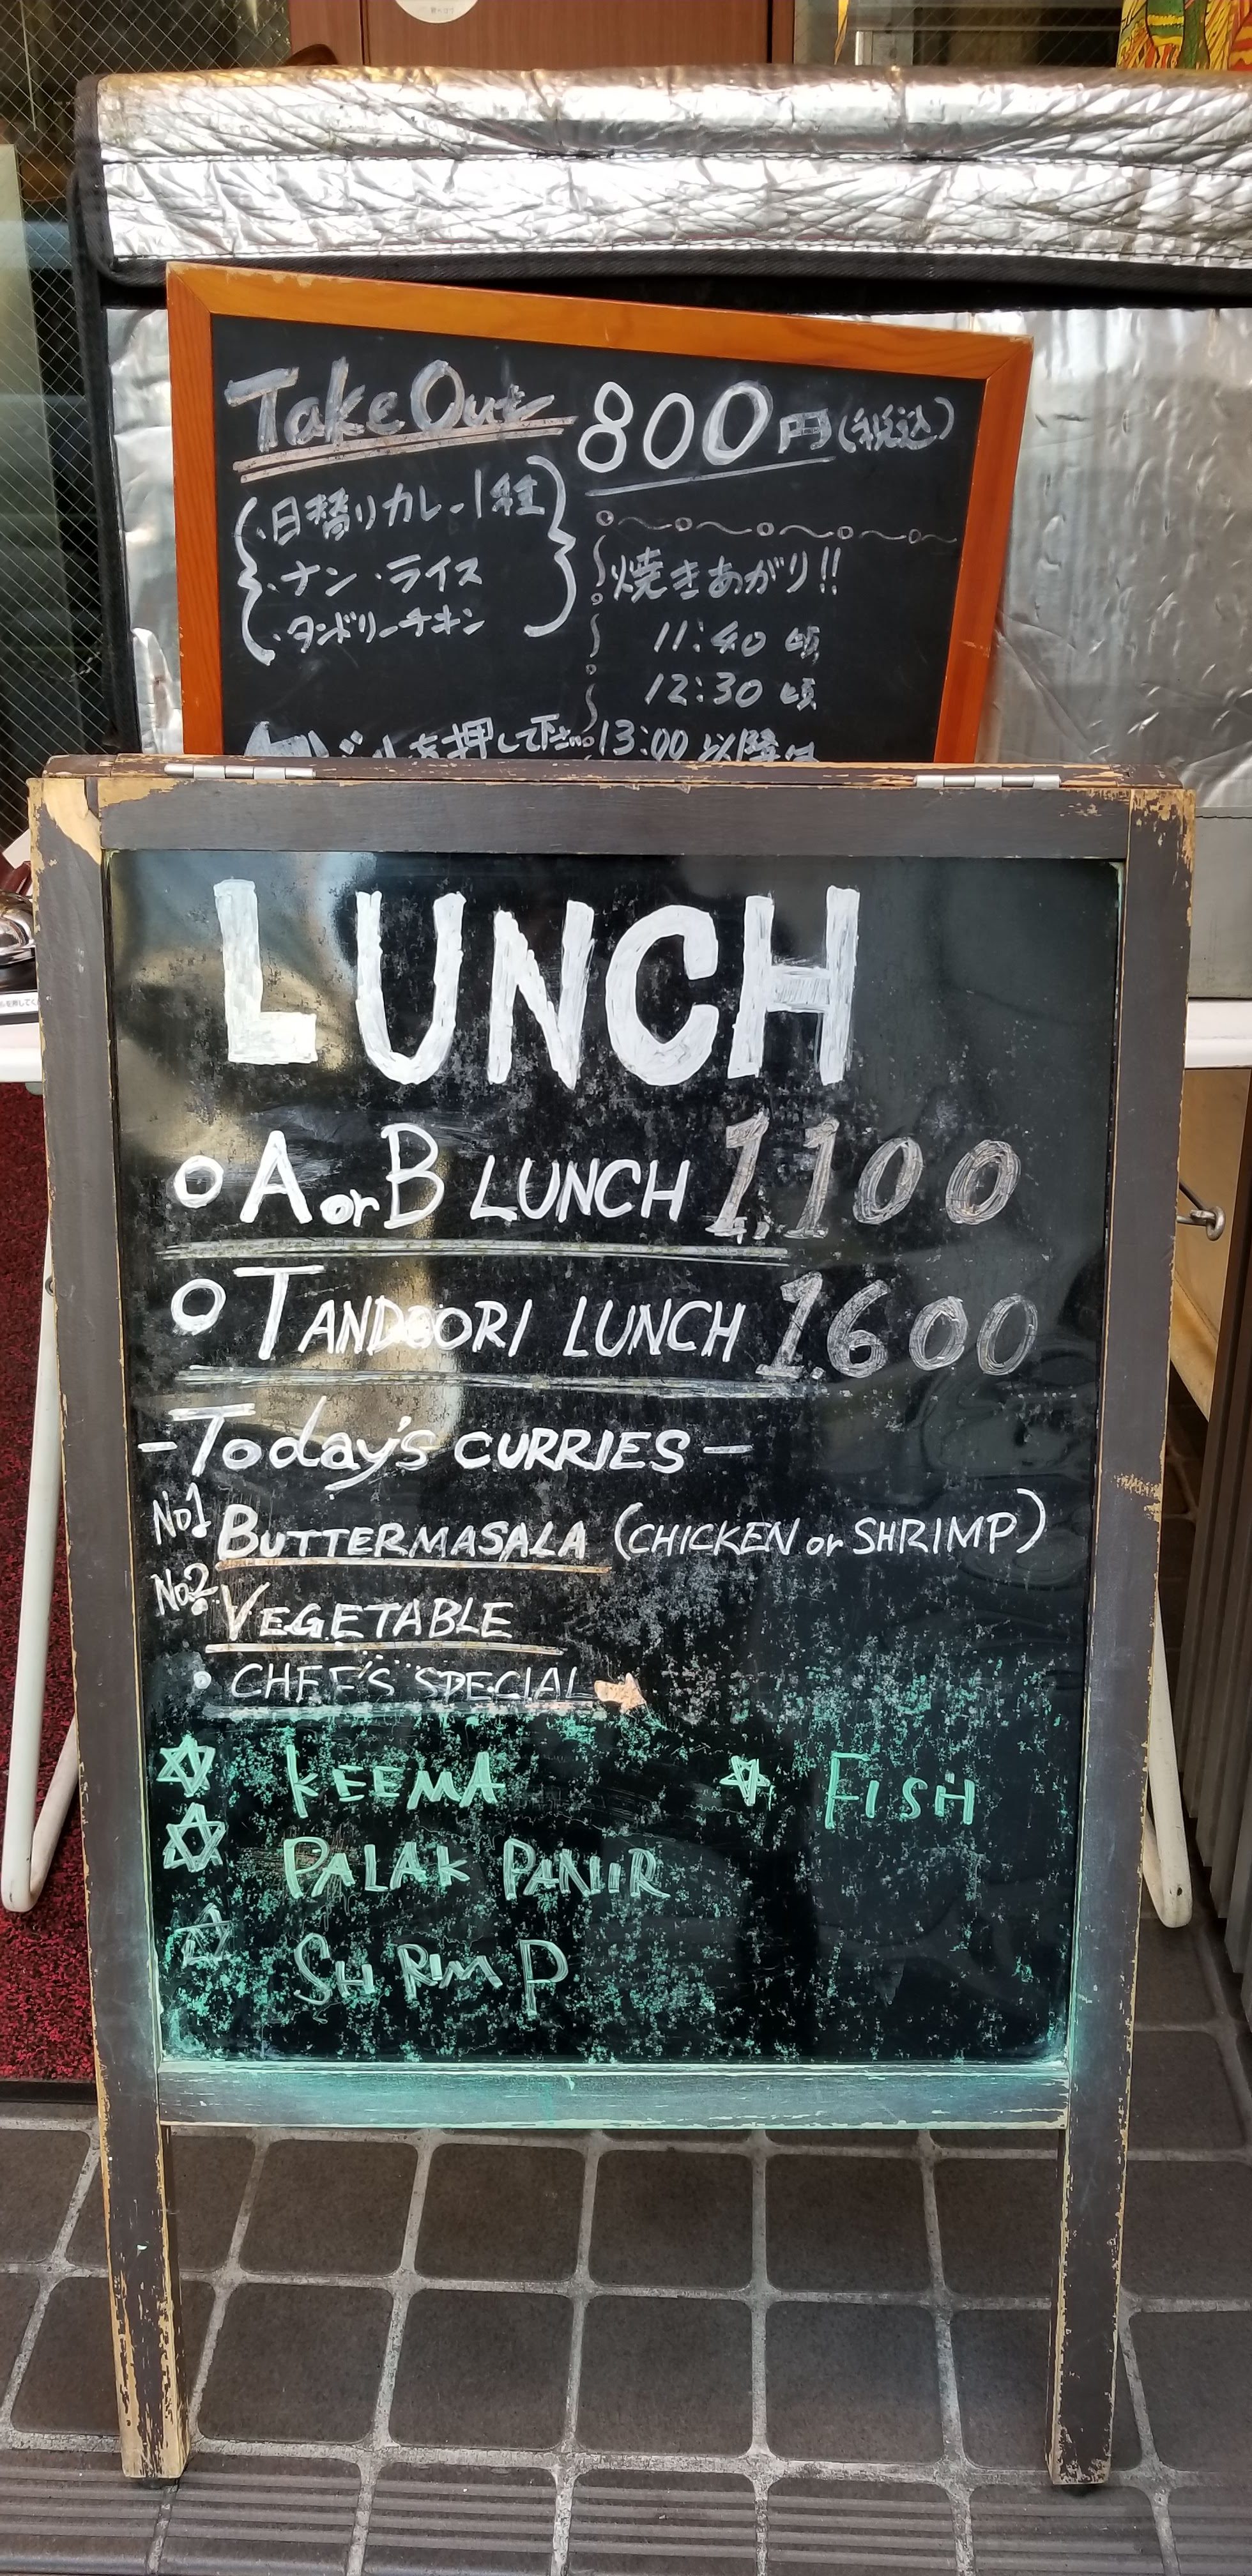 Take Out 800円(税込)
・日替りカレー1種
・ナン・ライス
・タンドリーチキン
焼きあがり!!
11:40 頃
12:30 頃
13:00 以降は
ベルを押して下さい
LUNCH
○ A or B LUNCH 1,100
○ TANDOORI LUNCH 1,600
-Today's CURRIES-
No1 BUTTERMASALA (CHICKEN or SHRIMP)
No.2 VEGETABLE
• CHEF'S SPECIAL
☆ KEEMA ☆ FISH
☆ PALAK PANIR
☆ SHRIMP